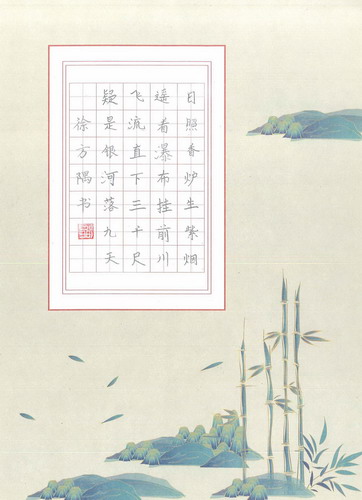 日照香炉生紫烟
遥看瀑布挂前川
飞流直下三千尺
疑是银河落九天
徐方隅书